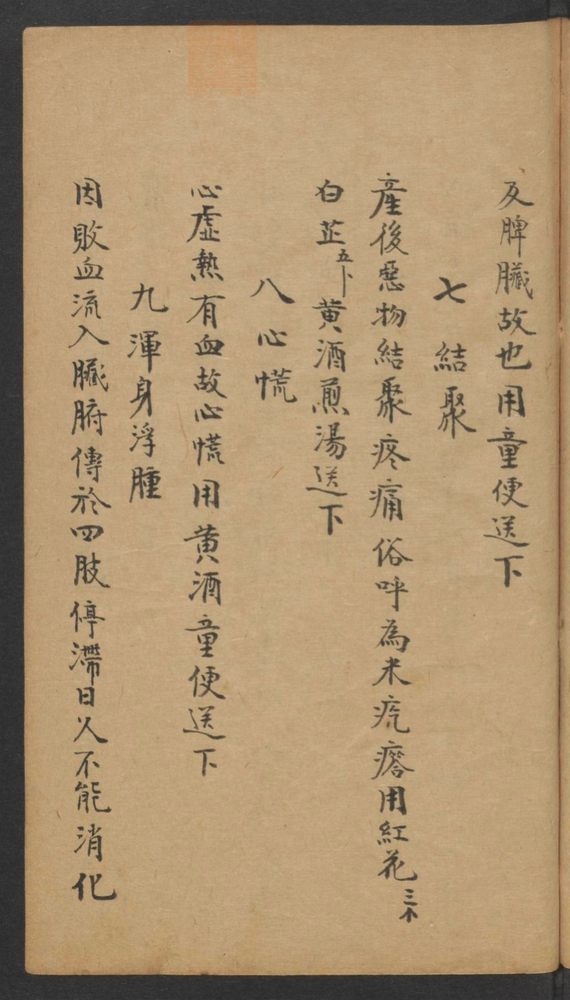 及脾臟故也用童便送下
七結聚
產後惡物結聚疼痛俗呼為米疙瘩用紅花三小
白芷五卜黃酒煎湯送下
八心慌
心虛熱有血故心慌用黃酒童便送下
九渾身浮腫
因敗血流入臟腑傳於四肢停滯日久不能消化